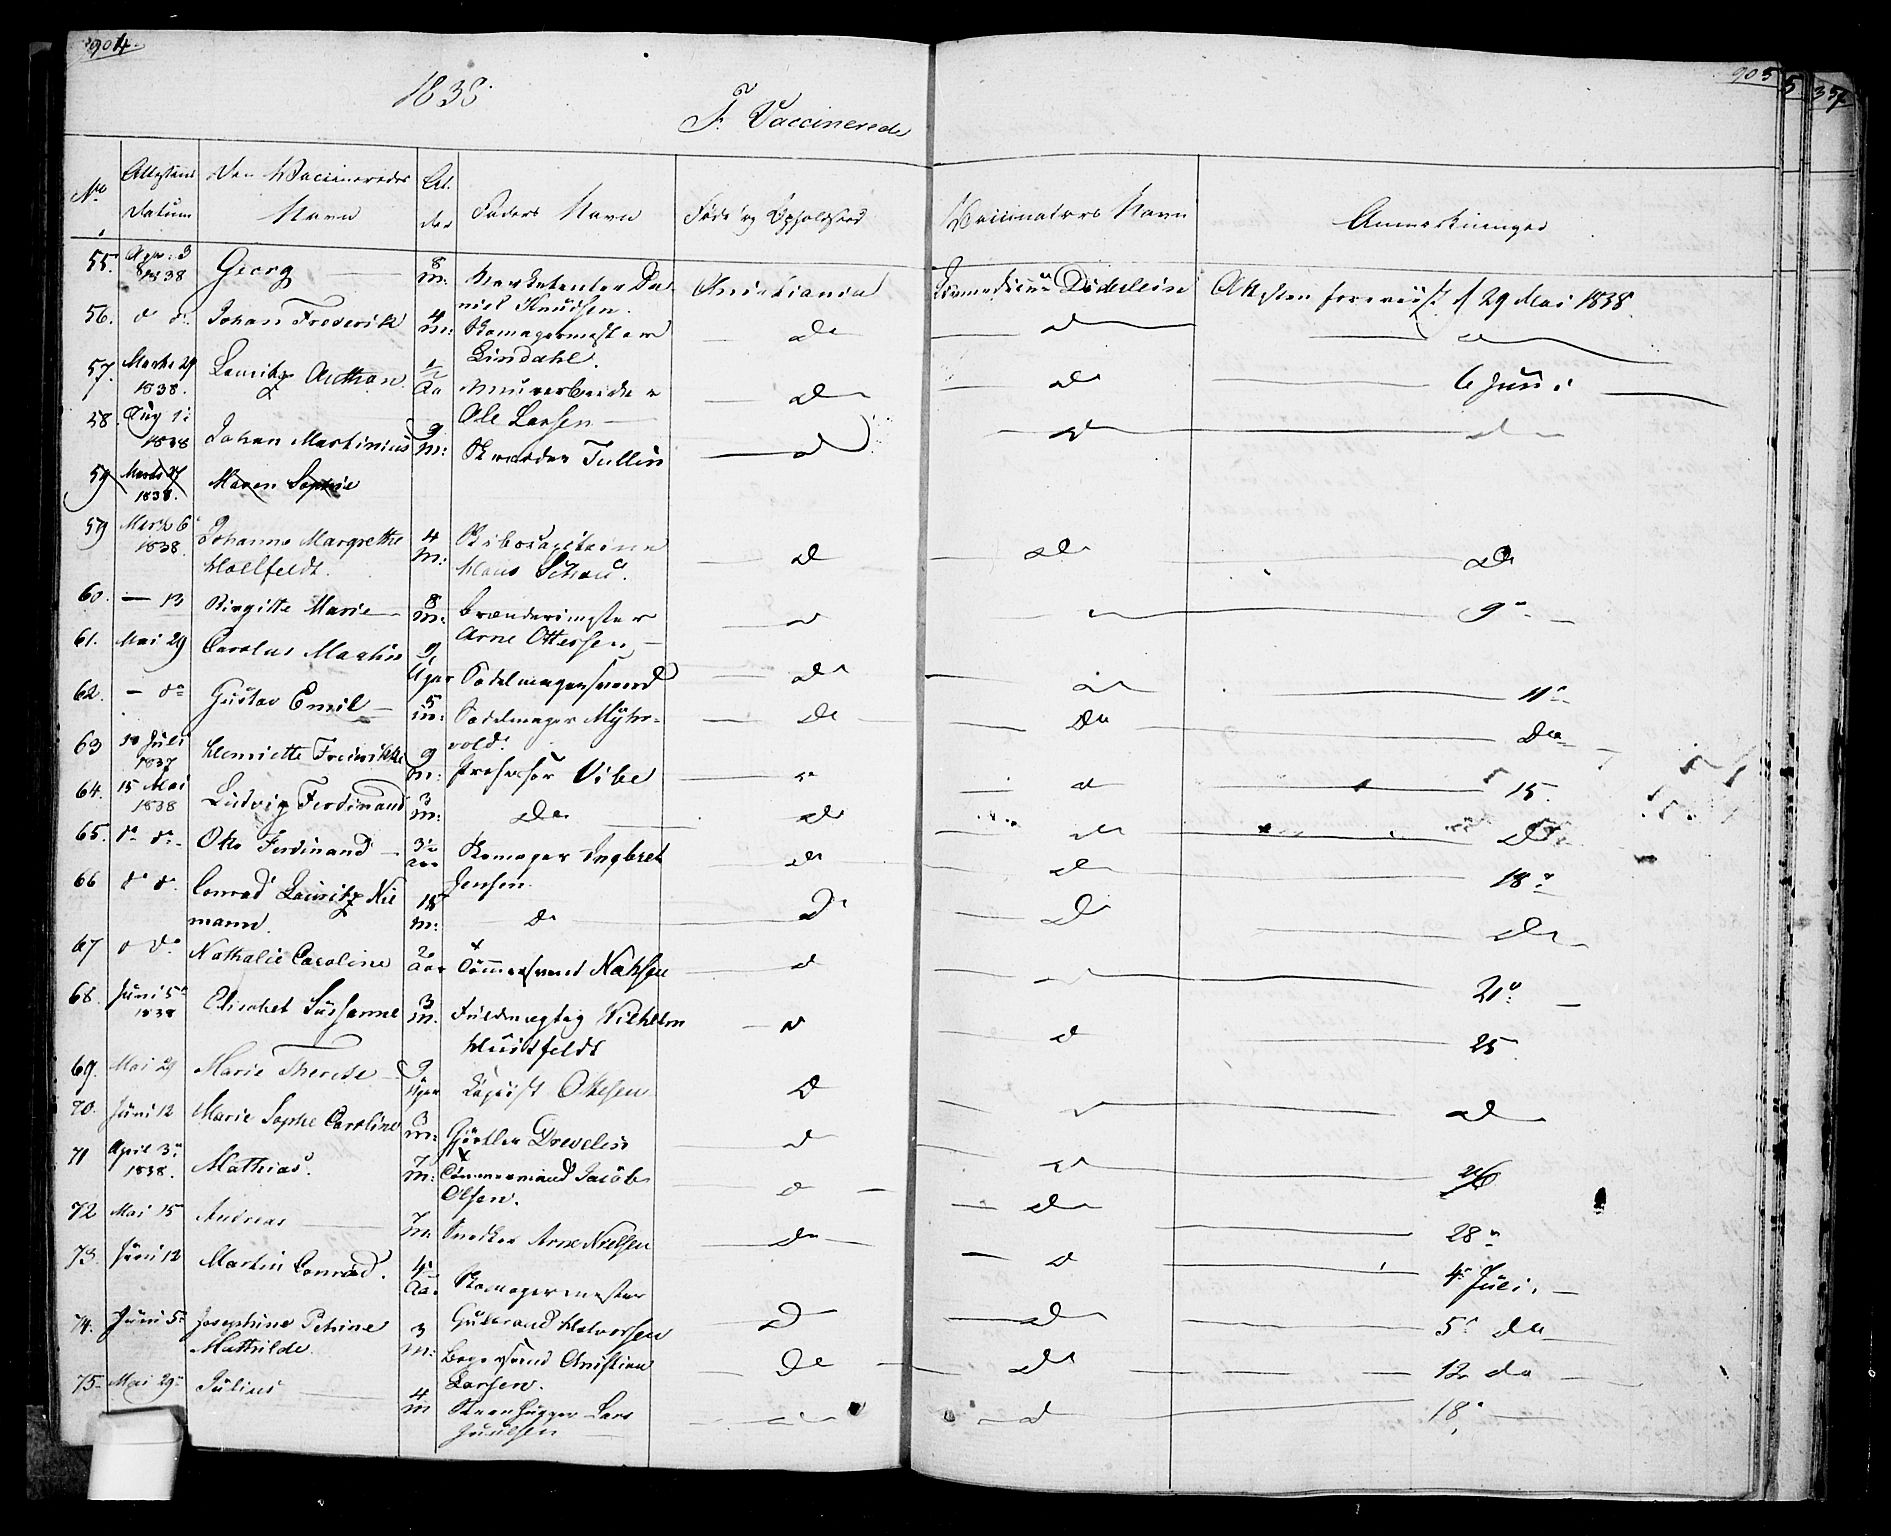 904.
905
1838
F. Vaccinerede
No | Attestens Datum | Den Vaccineredes Navn | Al. der | Faders Navn | Føde og Opholdsted | Vaccinatørs Navn | Anmærkninger
55. | Apr: 3 1838 | Georg | 8 m: | Marketenter Da niel Knudsen. | Christiania | | Attesten foreviist d 29 Mai 1838.
56. | do do | Johan Frederik | 4 m: | Skomagermester Lindahl. | do | do | do
57. | Marts 29 1838. | Lauritz Anthon | 1/2 Aa | Muurarbeider Ole Larsen | do | do | 6 Juni
58. | Aug 1 1838 | Johan Martinius | 9 m: | Skræder Tullin | do | do | do
59 | Marts 27 1838. | Maren Sophie
59 | Marts 6 1838. | Johanne Margrethe Hollfeldt. | 4 m: | Skibscapitaine Hans Schou. | do | do | do
60. | — 13 | Birgitte Marie | 8 m: | Brænderimester Arne Ottersen | do | do | 9
61. | Mai 29 | Carolus Martin | 9 Uger | Sadelmagersvend | do | do | 11
62. | — do | Gustav Emil | 5 m: | Sadelmager Myhr- vold. | do | do | do
63 | 10 Juli 1837 | Henriette Fredrikke | 9 m: | Professor Vibe | do | do | 15.
64. | 15 Mai 1838 | Ludvig Ferdinand | 3 m: | do | do | do | do
65. | do do | Otto Ferdinand | 3½ aar | Skomager Ingbret Jensen. | do | do | 18
66 | do do | Conrad Lauritz Nie mann. | 18 m: | do | do | do | do
67 | do do | Nathalie Caroline | 2 aar | Tømmersvend | do | do | 21
68. | Juni 5 1838 | Elisabet Susanne | 3 m. | Fuldmægtig Vilhelm Huitfeldt | do | do | 25.
69. | Mai 29 | Marie Therese | 9 Uger | Copiist Ottesen | do | do | do
70. | Juni 12 | Marie Sophe Caroline | 3 m: | Gjørtler | do | do | 26
71 | April 3 1838. | Mathias. | 7 m: | Tømmermand Jacob Olsen. | do | do
72 | Mai 15 | Andreas | 7 m | Snedker Arne Nielsen | do | do | 28
73. | Juni 12 | Martin Conrad. | 4 Aar | Skomagermester Gulbrand Halvorsen | do | do | 4 Juli.
74. | Juni 5 | Josephine Petrine Mathilde. | 3 m: | Bagersvend Christian Larsen. | do | do | 5 do
75. | Mai 29 | Julius | 4 m | Steenhugger Lars Juulsen | do | do | 12 do
18